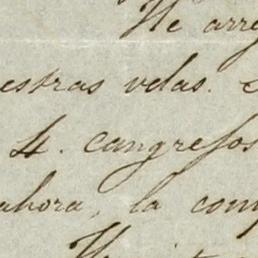 He arre
estras velas.
4. cangrejos
ahora, la com